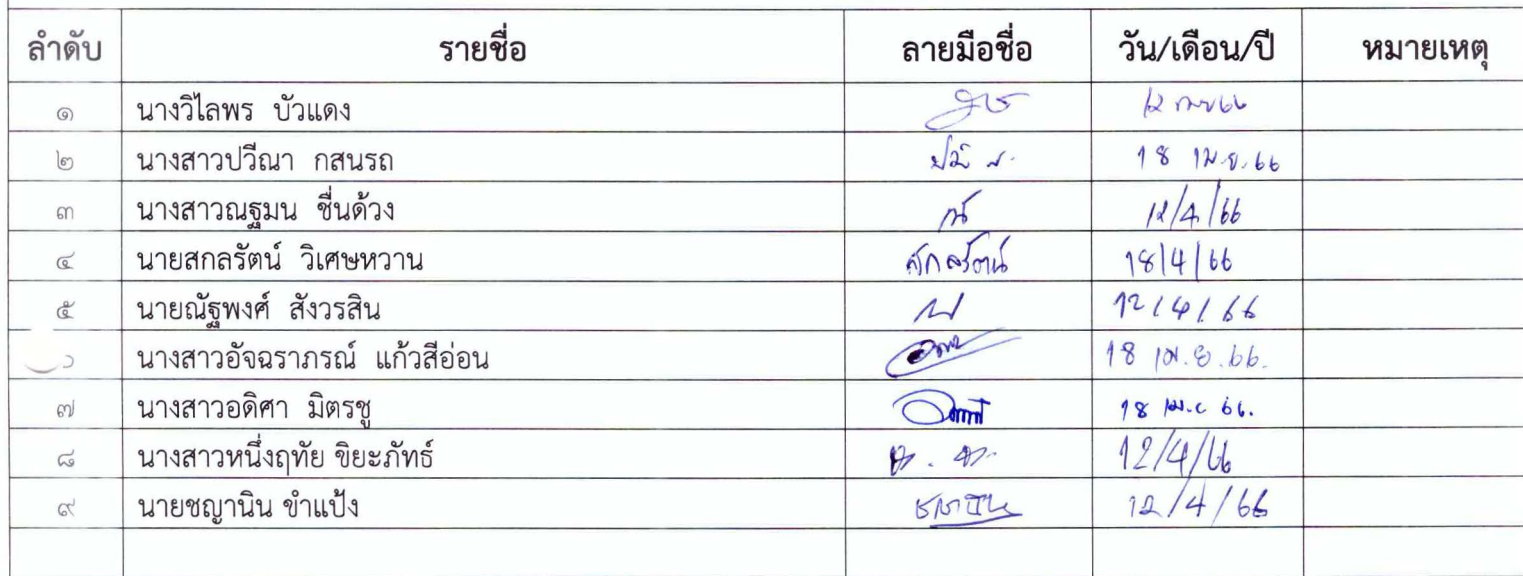 ลำดับ รายชื่อ ลายมือชื่อ วัน/เดือน/ปี หมายเหตุ
๑ นางวิไลพร บัวแดง
๒ นางสาวปวีณา กสนรถ 18 เม.ย. 66
๓ นางสาวณฐมน ชื่นด้วง 12/4/66
๔ นายสกลรัตน์ วิเศษหวาน สกลรัตน์ 18/4/66
๕ นายณัฐพงศ์ สังวรสิน 12/4/66
นางสาวอัจฉราภรณ์ แก้วสีอ่อน 18 เม.ย. 66.
๗ นางสาวอดิศา มิตรชู 18 เม.ย 66.
๘ นางสาวหนึ่งฤทัย ขิยะภัทธ์ 12/4/66
๙ นายชญานิน ขำแป้ง ชญานิน 12/4/66